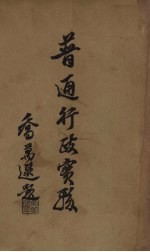 普通行政實務
喬萬選題